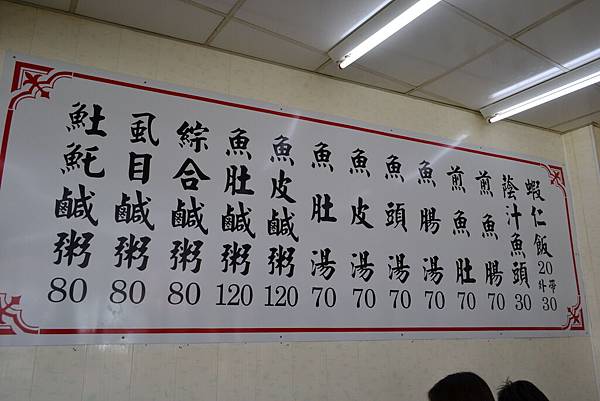 䰾魠鹹粥 80
虱目鹹粥 80
綜合鹹粥 80
魚肚鹹粥 120
魚皮鹹粥 120
魚肚湯 70
魚皮湯 70
魚頭湯 70
魚腸湯 70
煎魚肚 70
煎魚腸 70
蔭汁魚頭 30
蝦仁飯 20
外帶 30